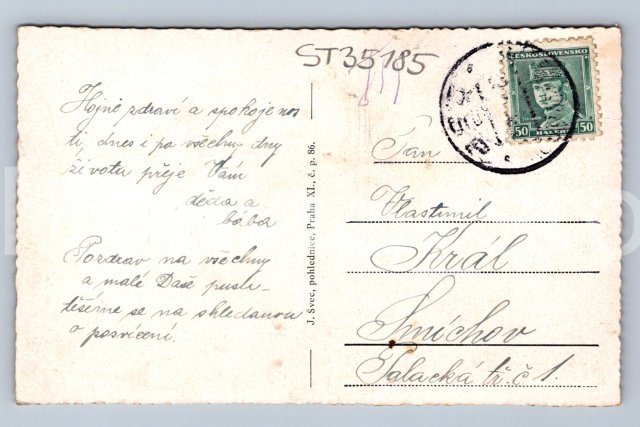 ST35185
ČESKOSLOVENSKO
50 HALÉŘŮ 50
Hojně zdraví a spokojenos
ti, dnes i po všechny dny
života přeje Vám
děda a
bába
Pozdrav na všechny
a malé Daše pusu
těšíme se na shledanou
o posvícení.
J. Švec, pohlednice, Praha XI., č. p. 86.
Pan
Vlastimil
Král
Smíchov
Palacká tř. č 1.